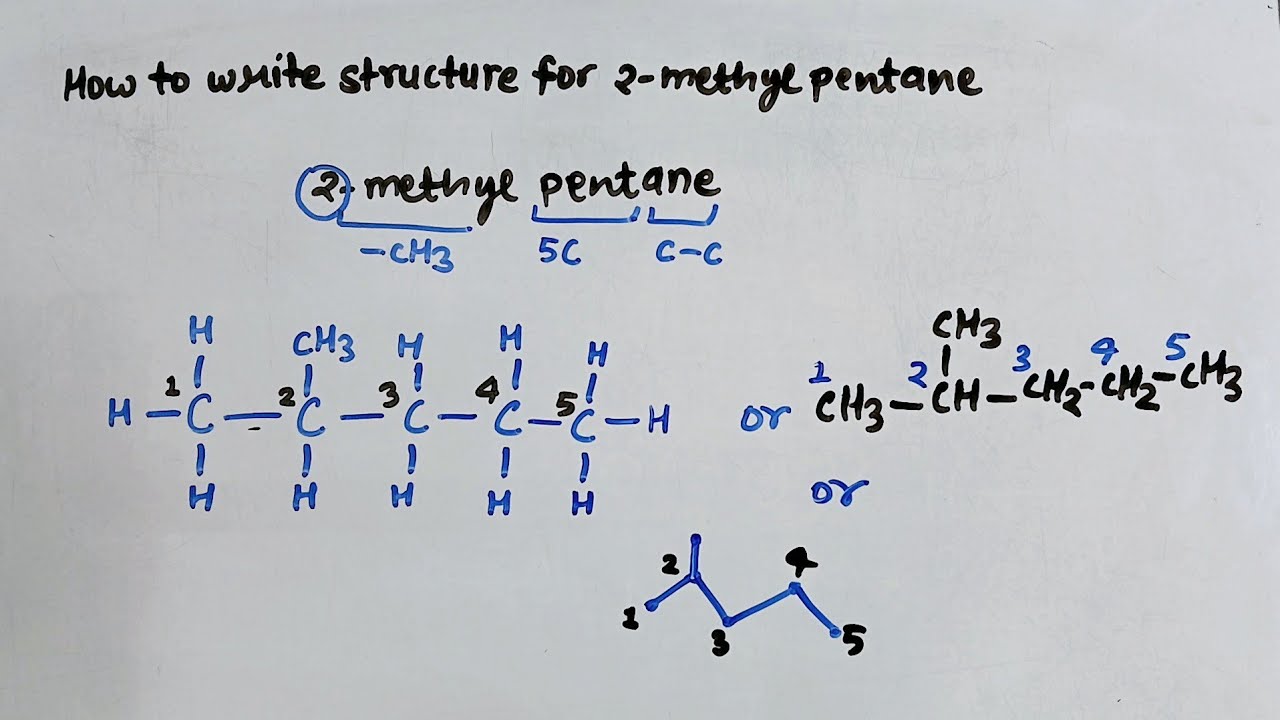 How to write structure for 2-methyl pentane
2-methyl pentane
-CH3 5C C-C
H CH3 H H H
H-1C-2C-3C-4C-5C-H
H H H H H
or
CH3
1 2 3 4 5
CH3-CH-CH2-CH2-CH3
or
2 4
1 3 5